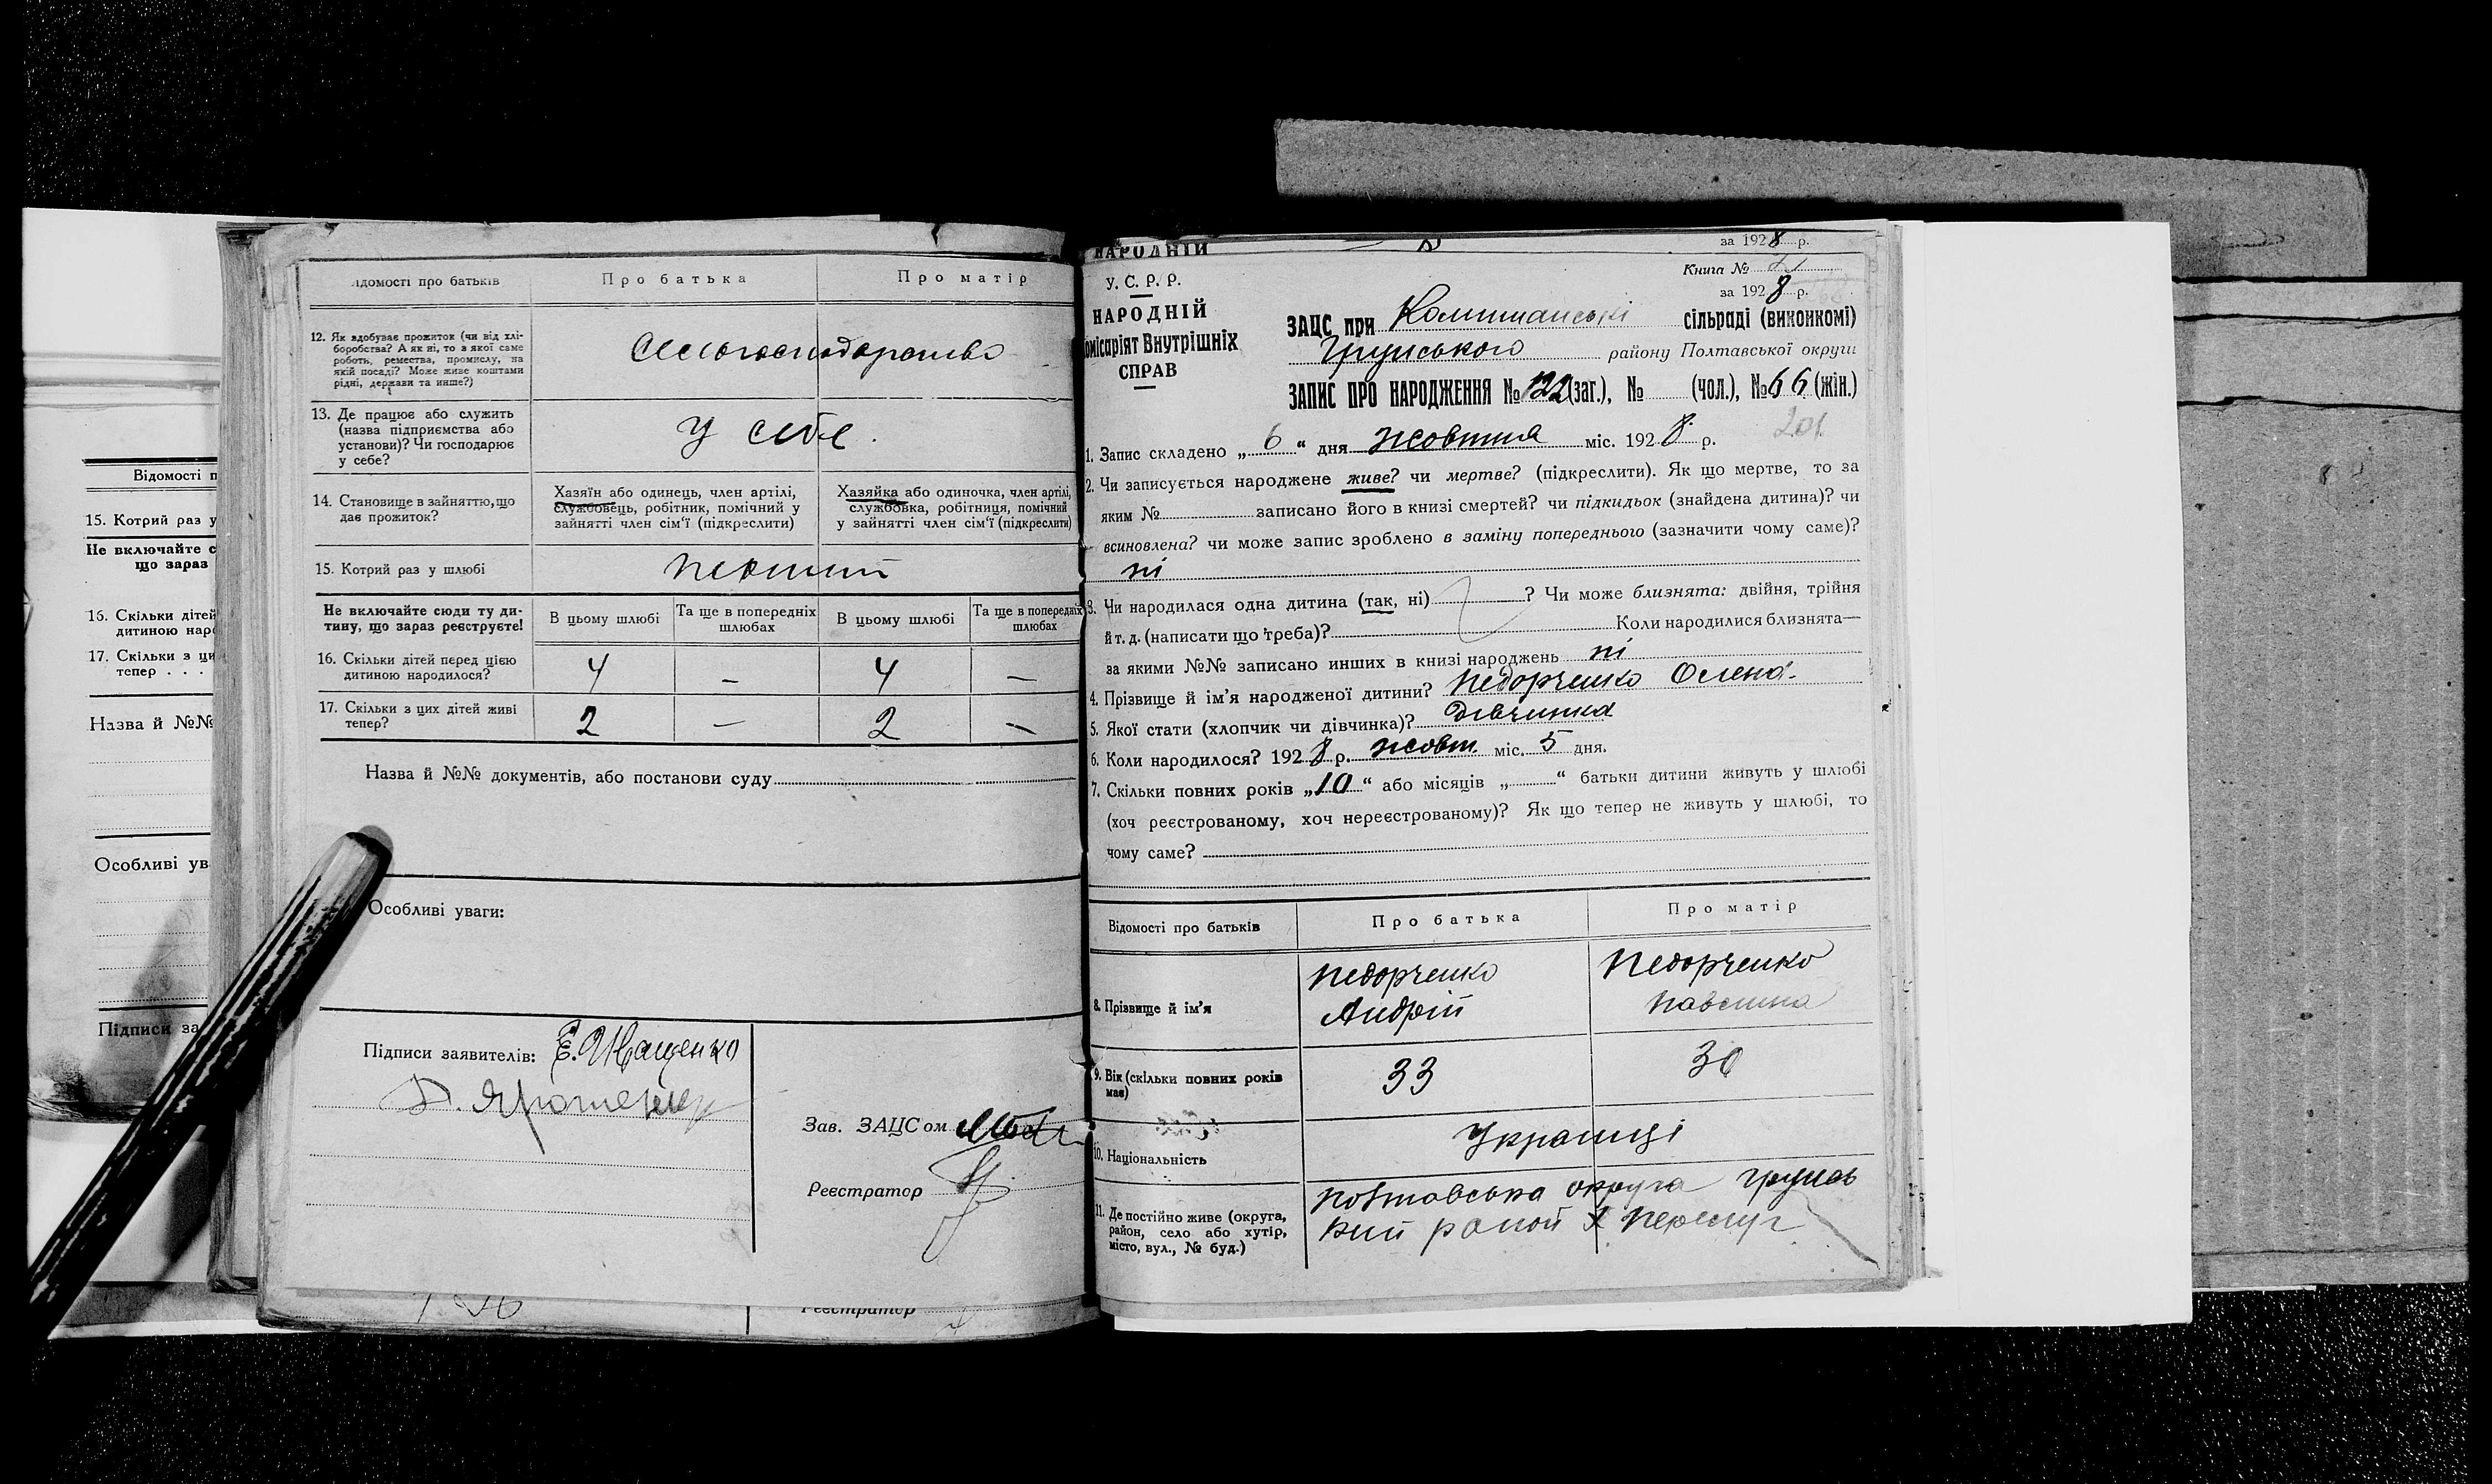 Відомості п
15. Котрий раз у
Не включайте с
що зараз
16. Скільки дітей
дитиною наро
17. Скільки з ци
тепер . . .
Назва й №№
Особливі ув
Підписи за
Відомості про батьків
Про батька
Про матір
12. Як здобуває прожиток (чи від хлі-
боробства? А як ні, то з якої саме
роботь, ремества, промислу, на
якій посаді? Може живе коштами
рідні, держави та инше?)
Сільгосподарство
13. Де працює або служить
(назва підприємства або
установи)? Чи господарює
у себе?
У себе.
14. Становище в зайняттю, що
дає прожиток?
Хазяїн або одинець, член артілі,
службовець, робітник, помічний у
зайнятті член сім'ї (підкреслити)
Хазяйка або одиночка, член артілі,
службовка, робітниця, помічний
у зайнятті член сім'ї (підкреслити)
15. Котрий раз у шлюбі
перший
Не включайте сюди ту ди-
тину, що зараз реєструєте!
В цьому шлюбі
Та ще в попередніх
шлюбах
В цьому шлюбі
Та ще в попередніх
шлюбах
16. Скільки дітей перед цією
дитиною народилося?
4 – 4 –
17. Скільки з цих дітей живі
тепер?
2 – 2 –
Назва й №№ документів, або постанови суду
Особливі уваги:
Підписи заявителів: Є. Іващенко
Ярошенко
Зав. ЗАЦСом
Реєстратор
Реєстратор
НАРОДНІЙ
за 1928 р.
У. С. Р. Р.
НАРОДНІЙ
омісаріят Внутрішніх
СПРАВ
Книга №
за 1928 р.
ЗАЦС при Комишанські сільраді (виконкомі)
Грунського району Полтавської округи
ЗАПИС ПРО НАРОДЖЕННЯ № 122 (заг.), № (чол.), № 66 (жін.)
201
1. Запис складено „ 6 “ дня жовтня міс. 1928 р.
2. Чи записується народжене живе? чи мертве? (підкреслити). Як що мертве, то за
яким № записано його в книзі смертей? чи підкидьок (знайдена дитина)? чи
всиновлена? чи може запис зроблено в заміну попереднього (зазначити чому саме)?
ні
3. Чи народилася одна дитина (так, ні) ? Чи може близнята: двійня, трійня
й т. д. (написати що треба)? Коли народилися близнята—
за якими №№ записано инших в книзі народжень ні
4. Прізвище й ім'я народженої дитини? Недорченко Олена.
5. Якої стати (хлопчик чи дівчинка)? дівчинка
6. Коли народилося? 1928 р. жовт. міс. 5 дня.
7. Скільки повних років „10“ або місяців „ “ батьки дитини живуть у шлюбі
(хоч реєстрованому, хоч нереєстрованому)? Як що тепер не живуть у шлюбі, то
чому саме?
Відомості про батьків
Про батька
Про матір
8. Прізвище й ім'я
Недорченко
Андрій
Недорченко
Павлина
9. Вік (скільки повних років
має)
33
30
10. Національність
Українці
11. Де постійно живе (округа,
район, село або хутір,
місто, вул., № буд.)
Полтавська округа Грунсь
кий район х Перелуг